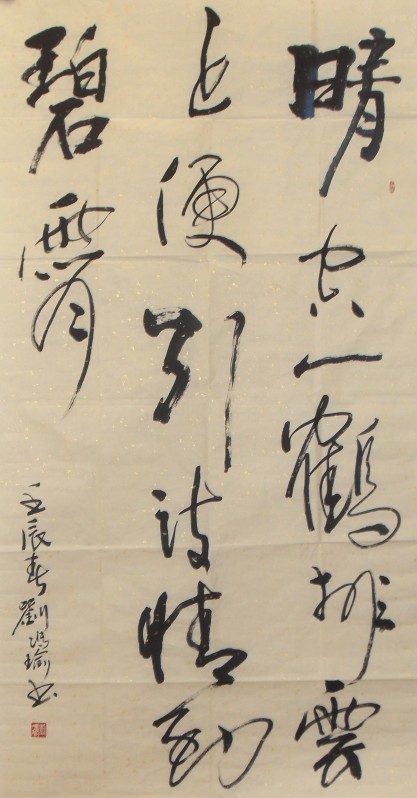 晴空一鶴排雲
上便引詩情到
碧霄
壬辰春劉瑜書